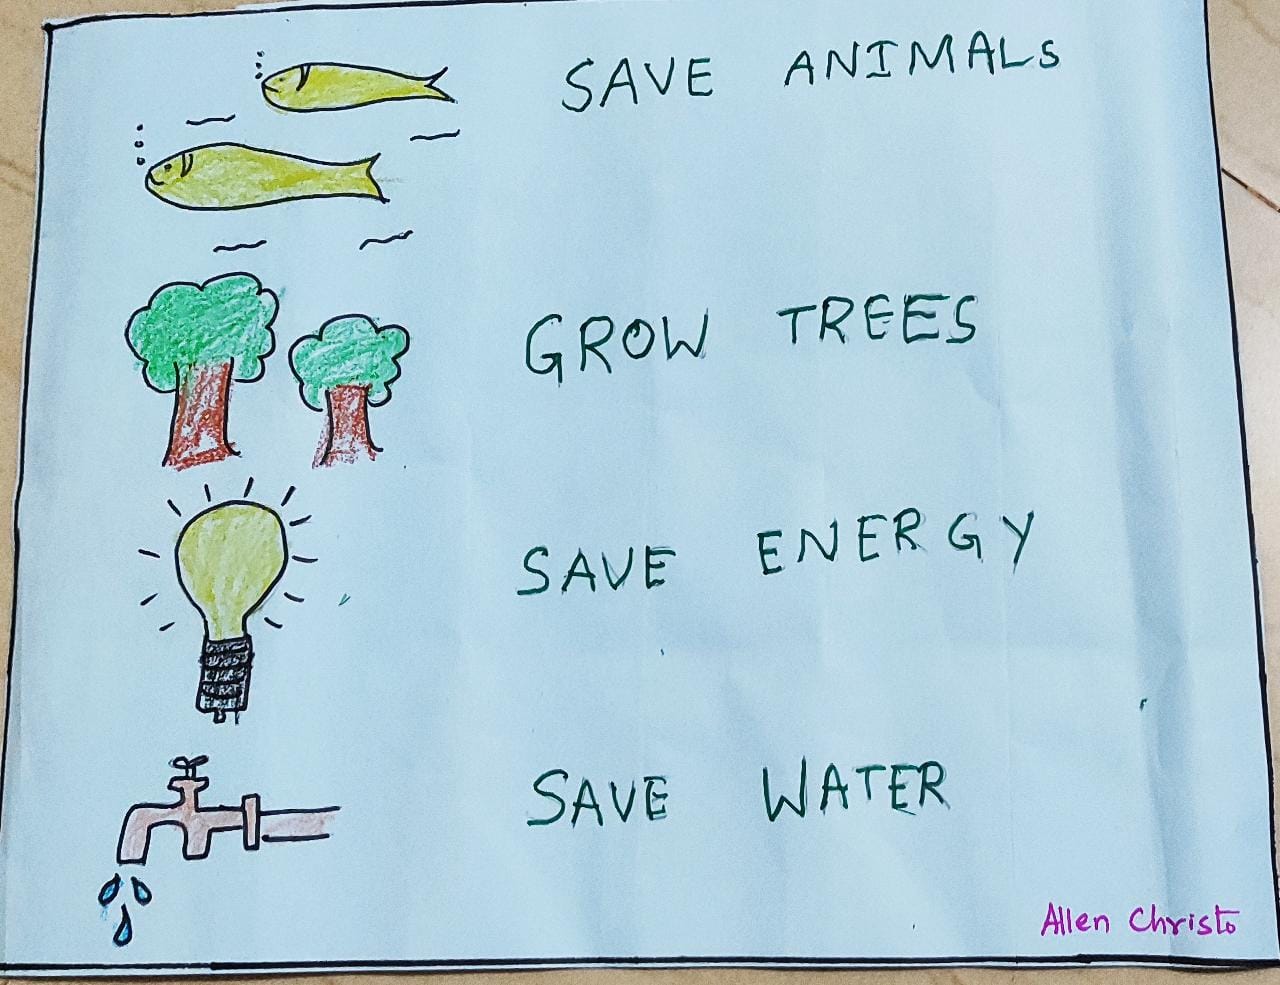 SAVE ANIMALS
GROW TREES
SAVE ENERGY
SAVE WATER
Allen Christo